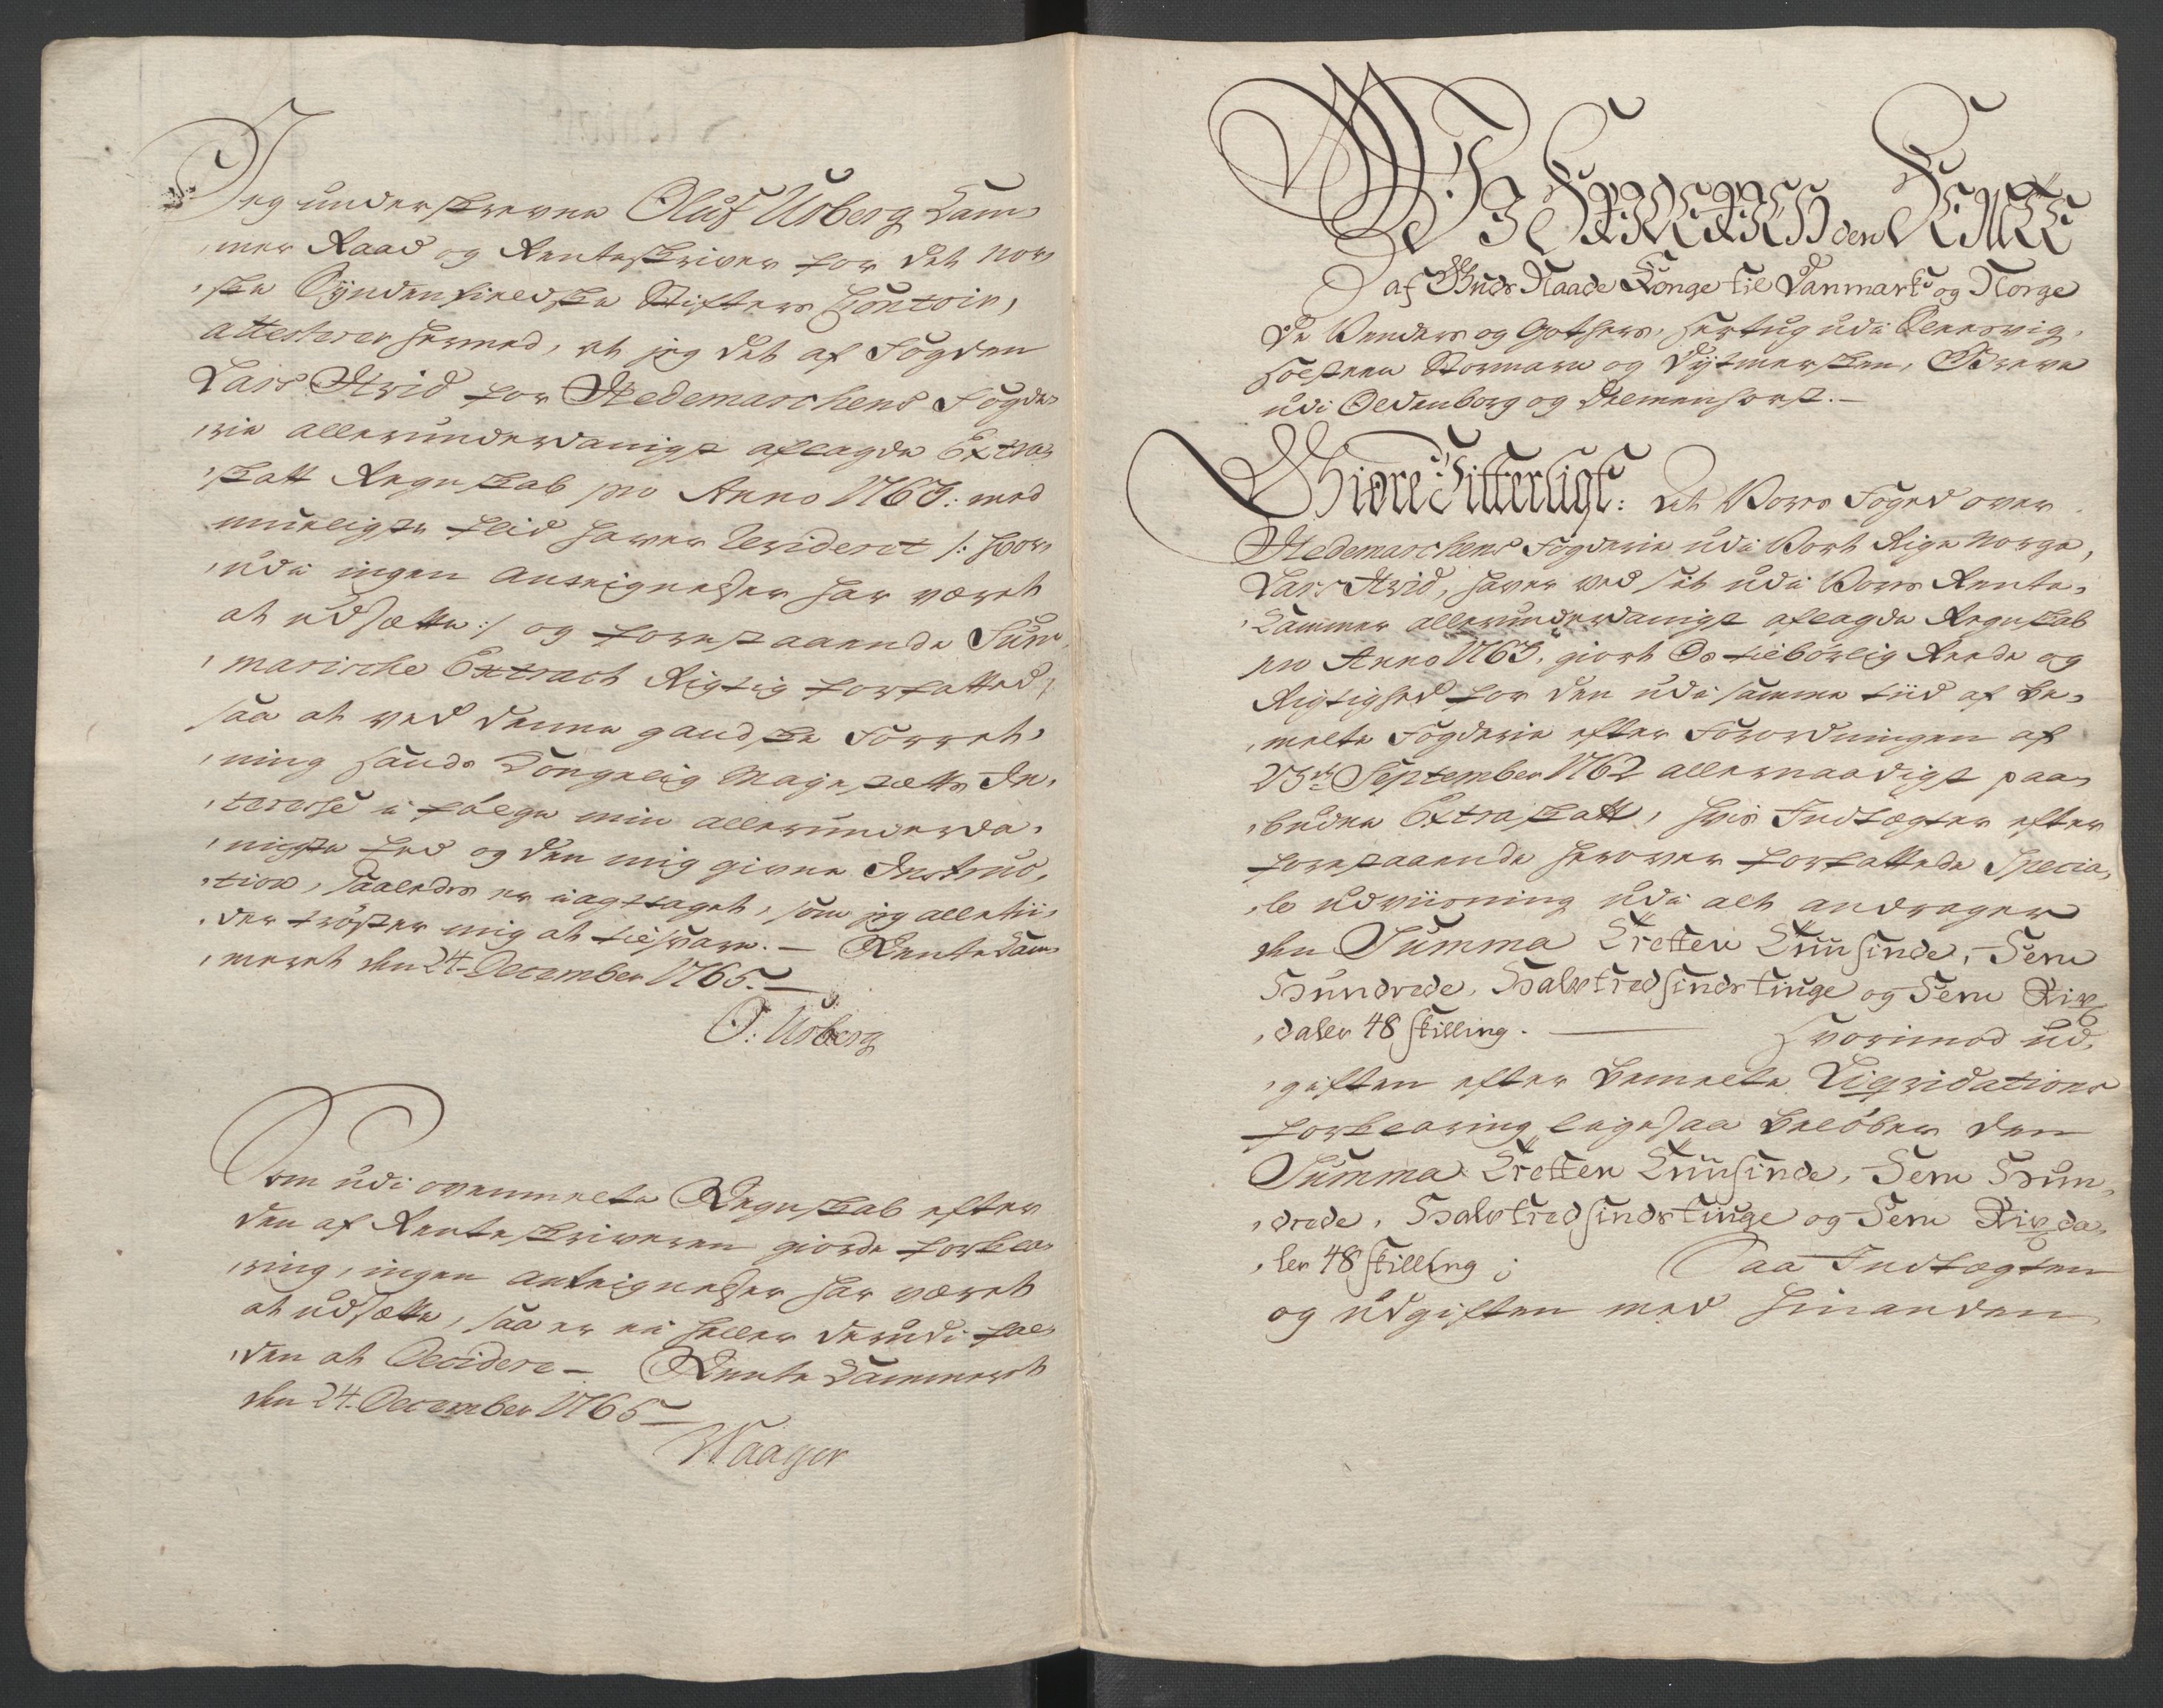 Jeg underskrevne Oluf Usberg Cam¬
mer Raad og Renteskriver for det Nor¬
ske Syndenfieldske Stifters Contoir,
attesterer hermed, at jeg det af Fogden
Lars Hvid for Hedemarchens Fogde¬
rie allerunderdanigst aflagde Extra¬
skatt Regnskab pro Anno 1763: med
mueligste fliid haver Revideret /: hvor¬
udi ingen Anteignelser har været
at udsætte :/ og forestaaende Sum¬
mariske Extract Rigtig forfatted,
saa at ved denne gandske Forret¬
ning hands Kongelig Majestætts In¬
teresse i følge min allerunderda¬
nigste Eed og den mig givne Instruc¬
tion, saaledes er iagttaget, som jeg alletii¬
der trøster mig at tilsvare. — Rente Cam¬
meret den 24. December 1765. —
O: Usberg
Som udi ovenmelte Regnskab efter
den af Renteskriveren giorde forkla¬
ring, ingen Anteignelser har været
at udsætte, saa er ei heller derudi fal¬
den at Decidere — Rente Cammeret
den 24. December 1765 —
Waager
WJ FRIDERICH den FEMTE
af Guds Naade Konge til Danmark og Norge
de Venders og Gothers, Hertug udi Slesvig,
Holsteen Stormarn og Dytmersken, Greve
udi Oldenborg og Delmenhorst. —
Giøre Vitterligt: At Vores Foged over
Hedemarchens Fogderie udi Vort Rige Norge,
Lars Hvid, haver ved sit udi Vores Rente¬
Cammer allerunderdanigst aflagde Regnskab
pro Anno 1763. giort Os tilbørlig Reede og
Rigtighed for den udi samme tiid af be¬
melte Fogderie efter Forordningen af
23de September 1762 allernaadigst paa¬
budne Extraskatt, hvis Indtægter efter
forestaaende herover forfattede Specia¬
le udviisning udi alt andrager
den Summa Tretten Tuusinde, Fem
Hundrede, Halvtredsindstiuge og Fem Rix
daler 48 skilling. — Hvorimod Ud¬
giften efter bemelte Liqvidations
forklaring ligesaa beløber den
Summa Tretten Tuusinde, Fem Hun¬
drede, Halvtredsindstiuge og Fem Rixda¬
ler 48 skilling; Saa Indtægten
og Udgiften med hinanden